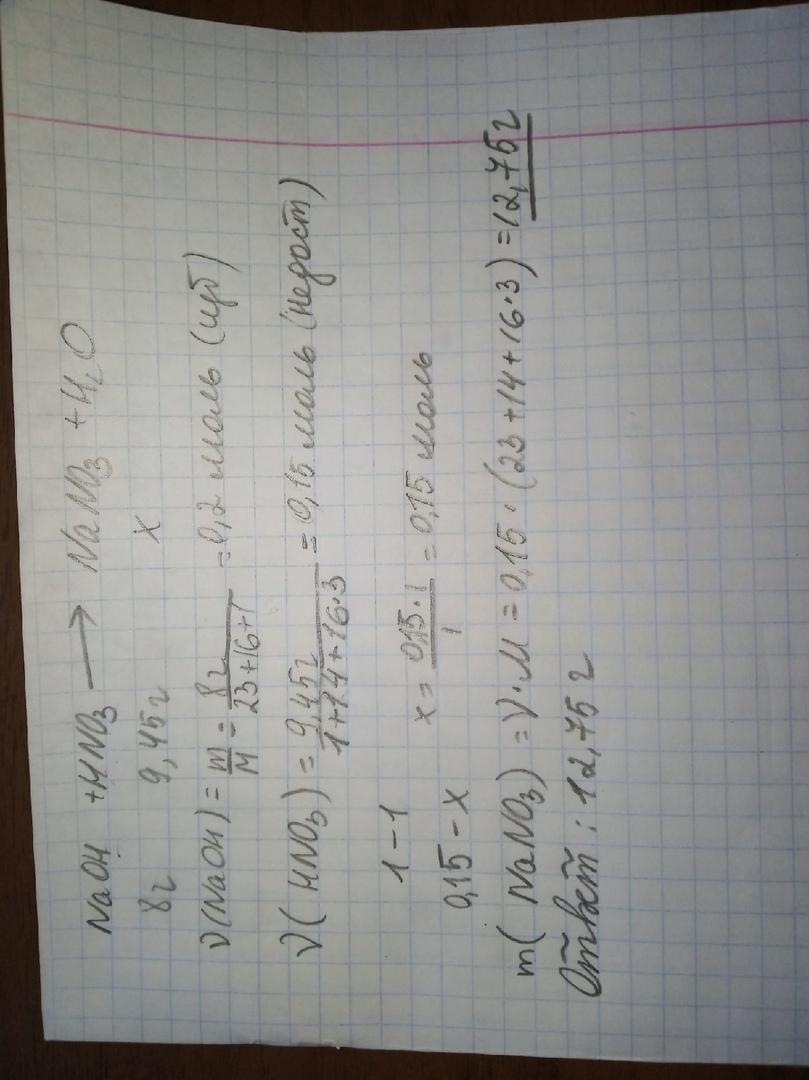 NaOH + HNO₃ → NaNO₃ + H₂O
8г 9,45г x
ν(NaOH) = m/M = 8г/23+16+1 = 0,2 моль (изб)
ν(HNO₃) = 9,45г/1+14+16·3 = 0,15 моль (недост)
1 – 1
0,15 – x x = 0,15·1/1 = 0,15 моль
m(NaNO₃) = ν·M = 0,15·(23+14+16·3) = 12,75г
Ответ: 12,75г